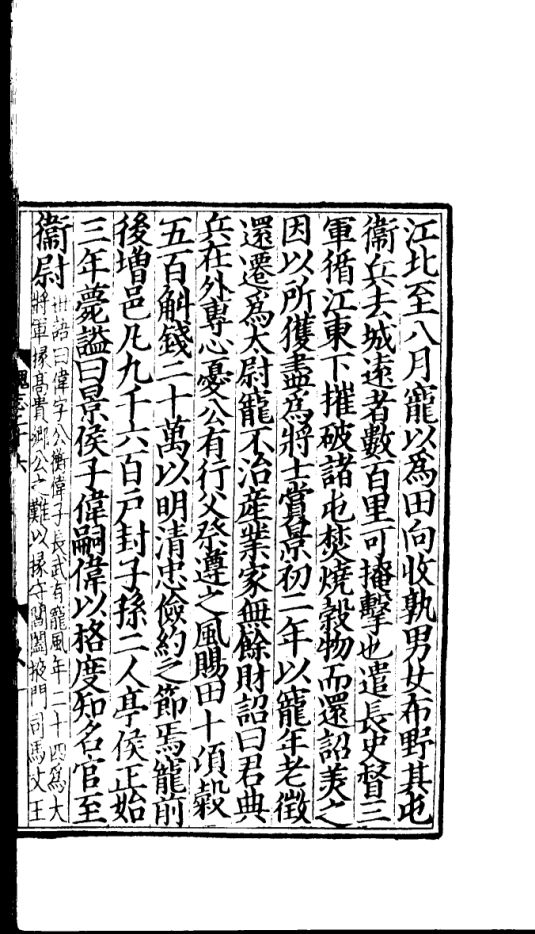 江北至八月寵以為田向收孰男女布野其屯
衞兵去城遠者數百里可掩擊也遣長史督三
軍循江東下摧破諸屯焚燒穀物而還詔美之
因以所獲盡爲將士賞景初二年以寵年老徵
還遷爲太尉寵不治産業家無餘財詔曰君典
兵在外專心憂公有行父祭遵之風賜田十頃穀
五百斛錢二十萬以明清忠儉約之節焉寵前
後增邑凡九千六百戸封子孫二人亭侯正始
三年薨謚曰景侯子偉嗣偉以格度知名官至
衞尉
世語曰偉字公衡偉子長武有寵風年二十四爲大
將軍掾高貴鄉公之難以掾守閶闔掖門司馬文王
魏志二十六